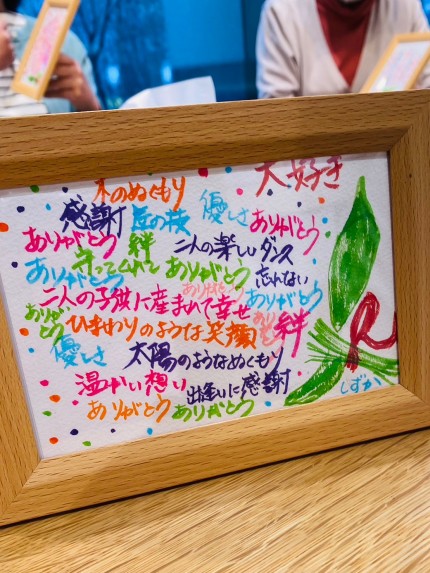 木のぬくもり
大好き
感謝
匠の技
優しさ
ありがとう
ありがとう
絆
二人の楽しいダンス
ありがとう
守ってくれて
ありがとう
忘れない
ありがとう
二人の子供に産まれて幸せ
ありがとう
ありがとう
ひまわりのような笑顔
ありがとう
絆
優しさ
太陽のようなぬくもり
温かい想い
出逢いに感謝
ありがとう
ありがとう
しずか